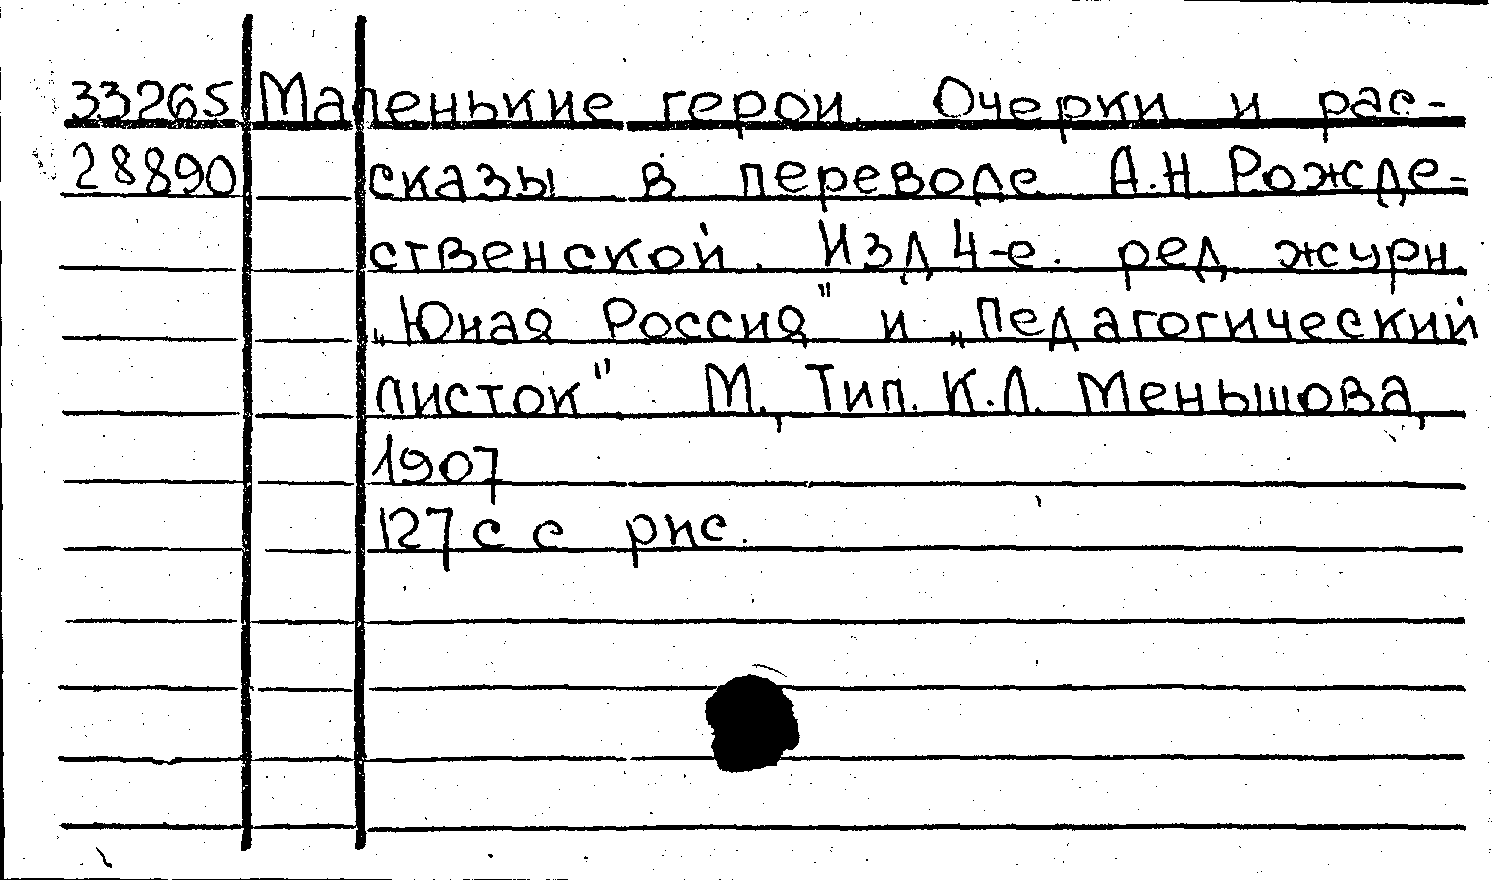 33265 Маленькие герои. Очерки и рас-
28890 сказы в переводе А.Н. Рожде-
ственской. Изд 4-е. ред. журн.
„Юная Россия" и „Педагогический
листок" М., Тип. К.Л. Меньшова,
1907
127 с с рис.